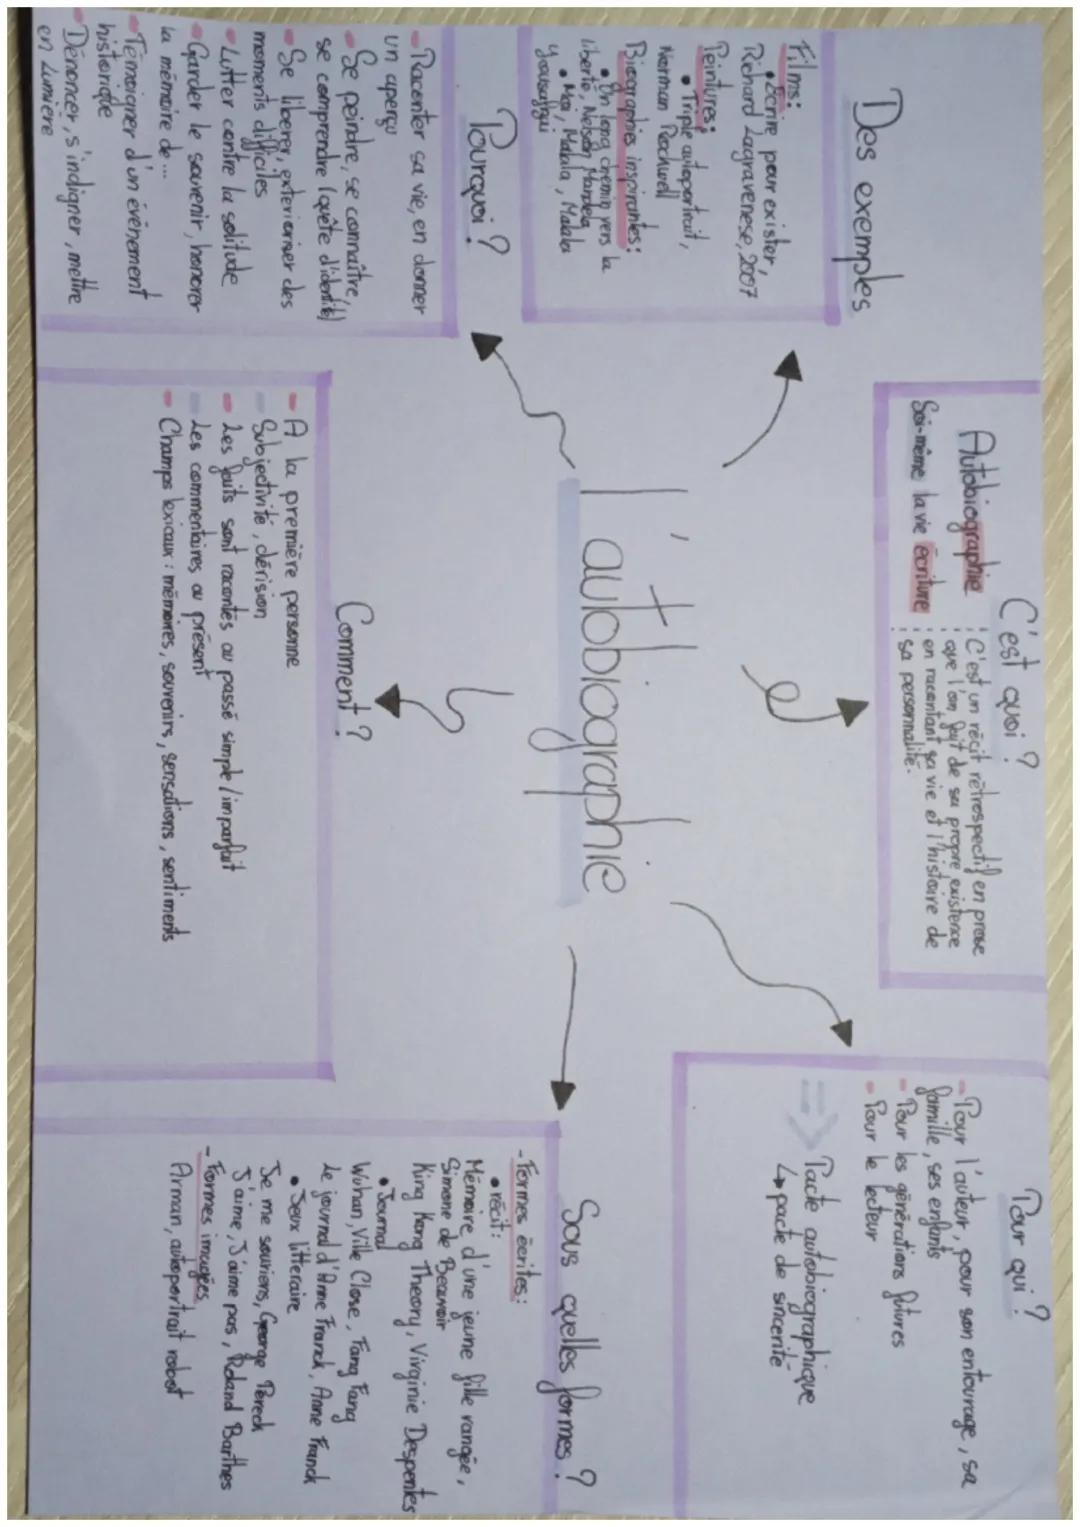 Des exemples
Films:
• Ecrire pour exister,
Richard Lagravenese, 2007
Peintures:
• Triple autoportrait,
Norman Rockwell
Biographies inspirantes:
• Un long chemin vers la
liberté, Nelson Mandela
• Moi, Malala, Malala
yousafzai
C'est quoi ?
Autobiographie
Soi-même la vie écriture
: C'est un récit rétrospectif en prose
que l'on fait de sa propre existence
en racontant sa vie et l'histoire de
sa personnalité.
Pour qui ?
- Pour l'auteur, pour son entourage, sa
famille, ses enfants
- Pour les générations futures
- Pour le lecteur
⇒ Pacte autobiographique
↳ pacte de sincérité
l'autobiographie
Pourquoi ?
- Raconter sa vie, en donner
un aperçu
- Se peindre, se connaître,
se comprendre (quête d'identité)
- Se libérer, extérioriser des
moments difficiles
- Lutter contre la solitude
- Garder le souvenir, honorer
la mémoire de...
- Témoigner d'un événement
historique
- Dénoncer, s'indigner, mettre
en lumière
Comment ?
- A la première personne
- Subjectivité, dérision
- Les faits sont racontés au passé simple / imparfait
- Les commentaires au présent
- Champs lexicaux : mémoires, souvenirs, sensations, sentiments
Sous quelles formes ?
- Formes écrites:
• récit:
Mémoire d'une jeune fille rangée,
Simone de Beauvoir
King Kong Theory, Virginie Despentes
• Journal
Wuhan, Ville Close, Fang Fang
Le journal d'Anne Franck, Anne Franck
• Jeux littéraire
Je me souviens, George Pereck
J'aime, J'aime pas, Roland Barthes
- Formes imagées
Arman, autoportrait robot